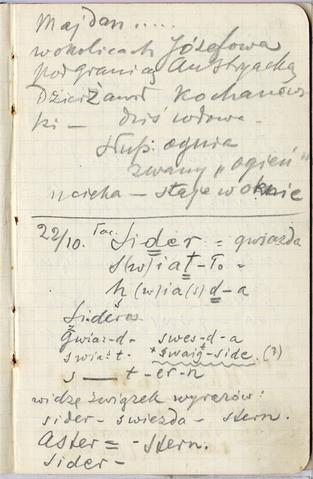 Majdan.....
w okolicach Józefowa
pod granicą Austryacką
Dzierżawił Kochanows
ki — dziś wdowa.
słup ognia
zwany „ogień"
ucieka — staje w oknie
22/10. Łac. Sider = gwiazda
s(w)iat-ło =
h(w)ia(s)d-a
Sideros
Gwiaz-d- swes-d-a
swia-t. *swaig-side. (?)
s — t-er-n
widzę związek wyrazów:
sider- swiezda- stern.
Aster = -stern.
sider-